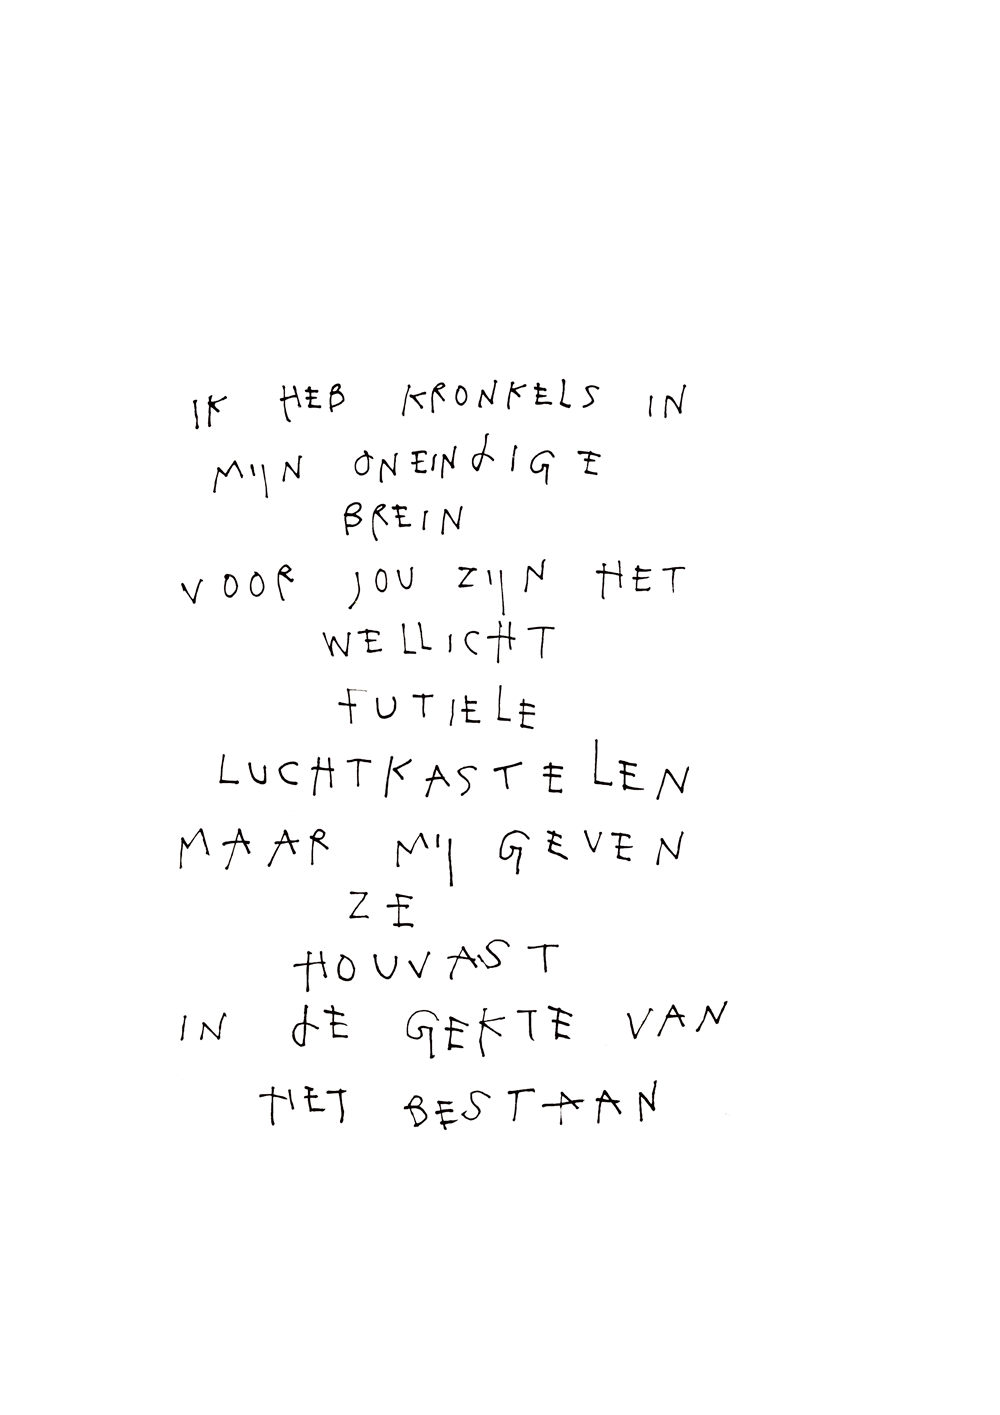 IK HEB KRONKELS IN
MIJN ONEINDIGE
BREIN
VOOR JOU ZIJN HET
WELLICHT
FUTIELE
LUCHTKASTELEN
MAAR MIJ GEVEN
ZE
HOUVAST
IN DE GEKTE VAN
HET BESTAAN